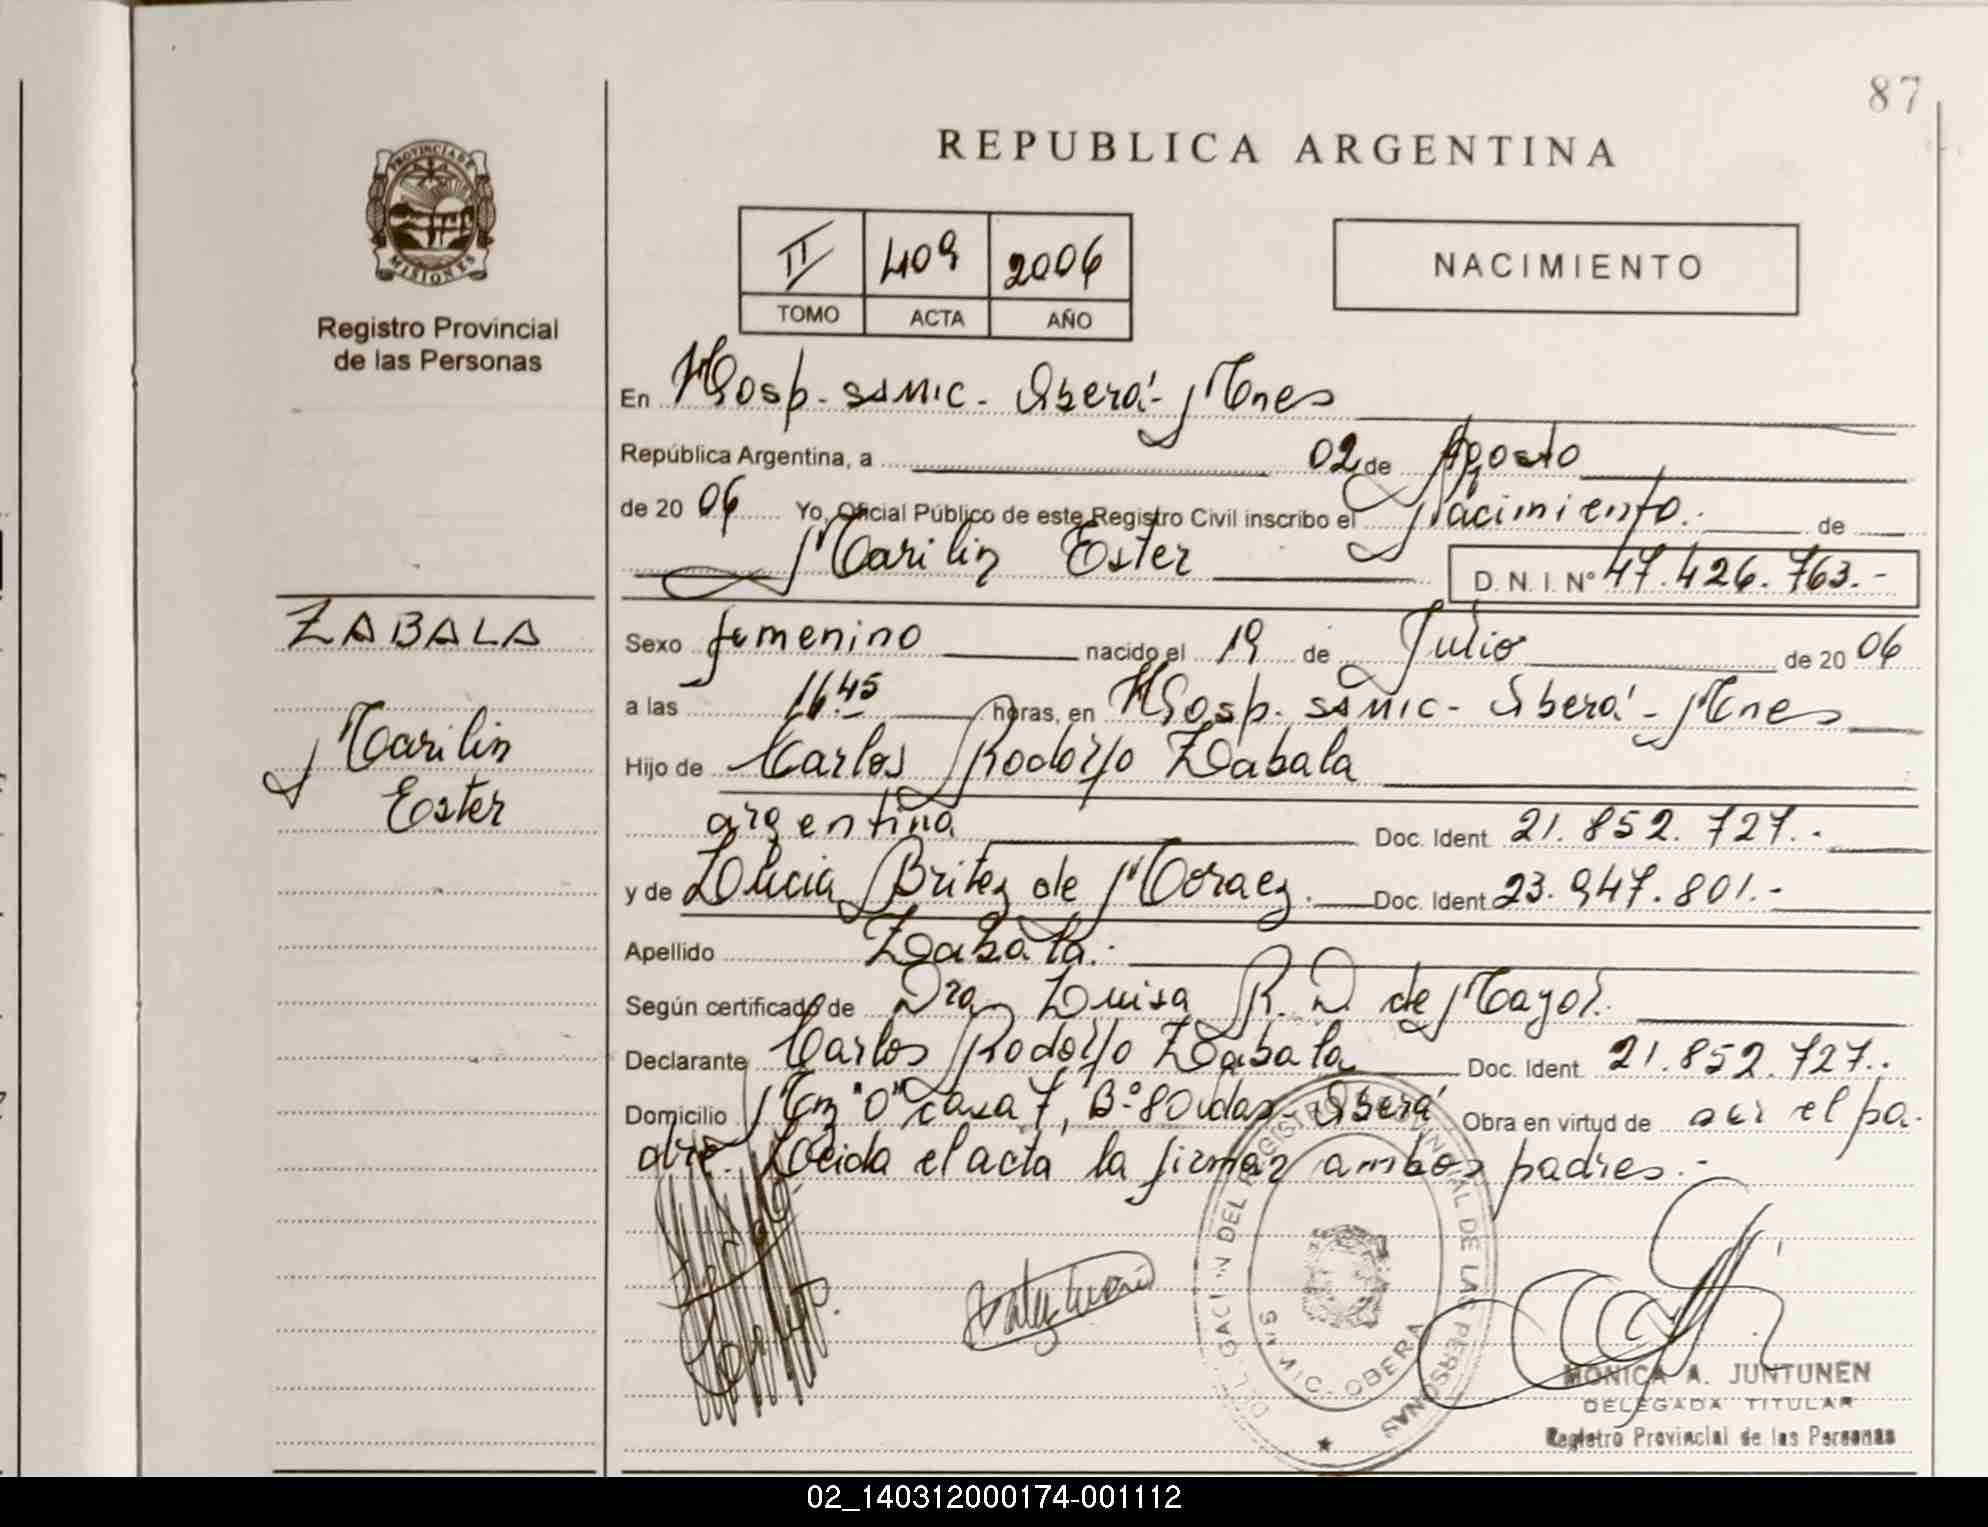 87
REPUBLICA ARGENTINA
PROVINCIA DE
MISIONES
Registro Provincial
de las Personas
II 409 2006
TOMO ACTA AÑO
NACIMIENTO
En Hosp. SAMIC - Oberá - Mnes
República Argentina, a 02 de Agosto
de 20 06 Yo, Oficial Público de este Registro Civil inscribo el Nacimiento. de
Marilin Ester D. N. I. N° 47.426.763.-
ZABALA
Marilin
Ester
Sexo femenino nacido el 19 de Julio de 20 06
a las 16.45 horas, en Hosp. SAMIC - Oberá - Mnes
Hijo de Carlos Rodolfo Zabala
argentina Doc. Ident. 21.852.727.-
y de Lucia Britez de Moraez. Doc. Ident. 23.947.801.-
Apellido Zabala.
Según certificado de Dra Luisa R. D. de Mayol.
Declarante Carlos Rodolfo Zabala Doc. Ident. 21.852.727.-
Domicilio Mz "O" casa 7, B° 80 vdas - Oberá Obra en virtud de ser el pa-
dre. Leida el acta la firman ambos padres.-
DELEGACION DEL REGISTRO PROVINCIAL DE LAS PERSONAS
SAMIC - OBERA
MONICA A. JUNTUNEN
DELEGADA TITULAR
Registro Provincial de las Personas
02_140312000174-001112